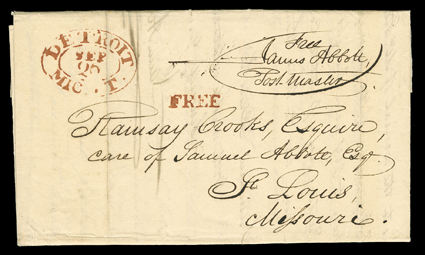 DETROIT
SEP
25
MIC. T.
Free
James Abbott,
Post Master
FREE
Ramsay Crooks, Esquire,
care of Samuel Abbott, Esq.
St. Louis,
Missouri.